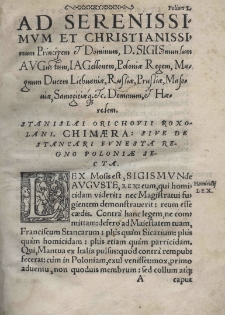 Folium 1.
AD SERENISSI-
MVM ET CHRISTIANISSI-
mum Principem & Dominum, D. SIGISmundum
AVGustum, IAGellonem, Poloniæ Regem, Ma-
gnum Ducem Lithuaniæ, Russiæ, Prussiæ, Maso-
uiæ, Samogitiæq; &c. Dominum, & Hæ-
redem.
STANISLAI ORICHOVII ROXO-
LANI. CHIMÆRA: SIVE DE
STANCARI FVNESTA RE-
GNO POLONIÆ SE-
CTA.
LEX Mosis est, SIGISMVNde
AVGVSTE, rex: eum, qui homi-
cidam viderit: nec Magistratui fu-
gientem demonstrauerit: reum esse
cædis. Contra hanc legem, ne com-
mittam: defero ad Maiestatem tuam,
Franciscum Stancarum: plus quàm Sicarium: plus
quàm homicidam: plus etiam quàm parricidam.
Qui, Mantua ex Italia pulsus: quòd contra rempub:
fecerat: cùm in Poloniam, exul venisset: mox, primo
aduentu, non quoduis membrum: sed collum atq;
Homicidij
LEX.
A
caput